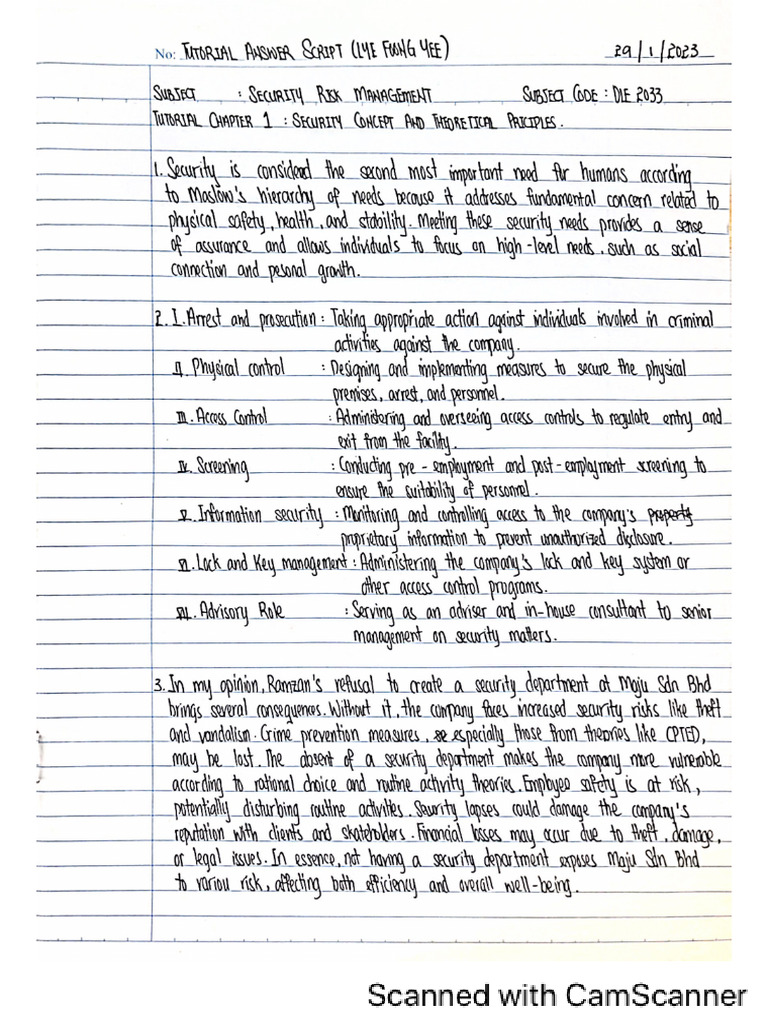 No: TUTORIAL ANSWER SCRIPT (LYE FOONG YEE) 29/1/2023
SUBJECT : SECURITY RISK MANAGEMENT SUBJECT CODE : DLE 2033
TUTORIAL CHAPTER 1 : SECURITY CONCEPT AND THEORETICAL PRICIPLES.
1. Security is considerd the second most important need for humans according
to Maslow's hierarchy of needs because it addresses fundamental concern related to
physical safety, health, and stability. Meeting these security needs provides a sense
of assurance and allows individuals to focus on high-level needs, such as social
connection and pesonal growth.
2. I. Arrest and prosecution : Taking appropriate action against individuals involved in criminal
activities against the company.
II. Physical control : Designing and implementing measures to secure the physical
premises, arrest, and personnel.
III. Access Control : Administering and overseeing access controls to regulate entry and
exit from the facility.
IV. Screening : Conducting pre-employment and post-employment screening to
ensure the suitability of personnel.
V. Information security : Monitoring and controlling access to the company's property
proprietary information to prevent unauthorized disclosure.
VI. Lock and Key management : Administering the company's lock and key system or
other access control programs.
VII. Advisory Role : Serving as an adviser and in-house consultant to senior
management on security matters.
3. In my opinion, Ramzan's refusal to create a security department at Maju Sdn Bhd
brings several consequences. Without it, the company faces increased security risks like theft
and vandalism. Crime prevention measures, especially those from theories like CPTED,
may be lost. The absent of a security department makes the company more vulnerable
according to rational choice and routine activity theories. Employee safety is at risk,
potentially disturbing routine activites. Security lapses could damage the company's
reputation with clients and stakeholders. Financial losses may occur due to theft, damage,
or legal issues. In essence, not having a security department exposes Maju Sdn Bhd
to variou risk, affecting both efficiency and overall well-being.
Scanned with CamScanner